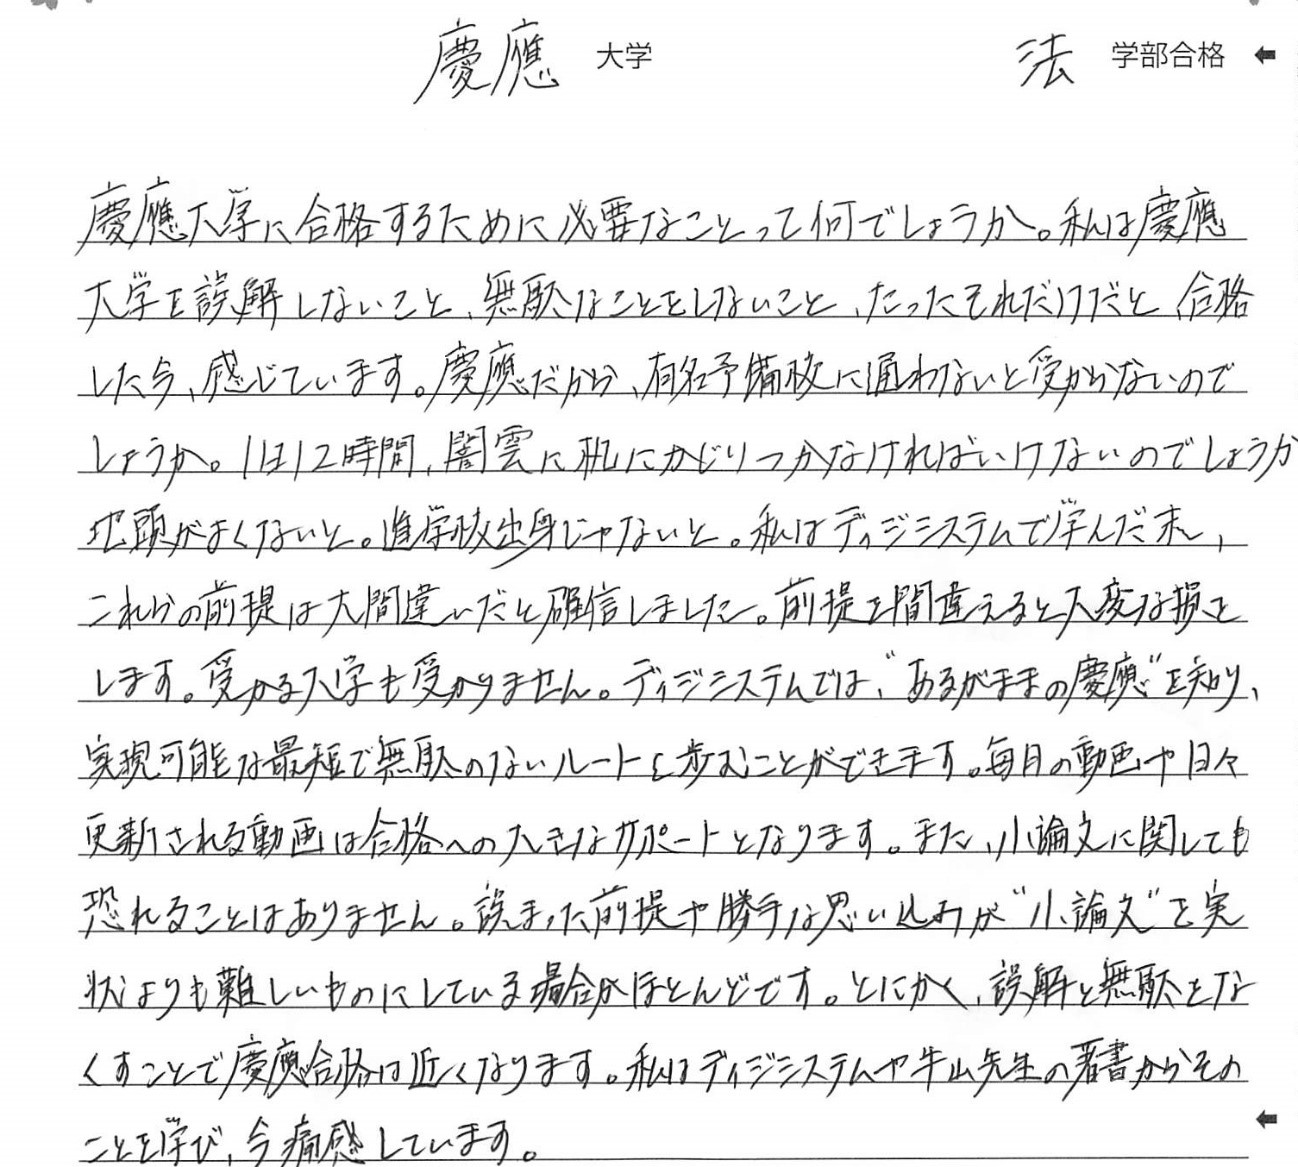 慶應 大学 法 学部合格
慶應大学に合格するために必要なことって何でしょうか。私は慶應
大学を誤解しないこと、無駄なことをしないこと、たったそれだけだと、合格
した今、感じています。慶應だから、有名予備校に通わないと受からないので
しょうか。1日12時間、闇雲に机にかじりつかなければいけないのでしょうか
地頭がよくないと。進学校出身じゃないと。私はディジシステムで学んだ末、
これらの前提は大間違いだと確信しました。前提を間違えると大変な損を
します。受かる大学も受かりません。ディジシステムでは、“あるがままの慶應”を知り、
実現可能な最短で無駄のないルートを歩むことができます。毎月の動画や日々
更新される動画は合格への大きなサポートとなります。また、小論文に関しても
恐れることはありません。誤まった前提や勝手な思い込みが“小論文”を実
状よりも難しいものにしている場合がほとんどです。とにかく、誤解と無駄をな
くすことで慶應合格は近くなります。私はディジシステムや牛山先生の著書からその
ことを学び、今痛感しています。